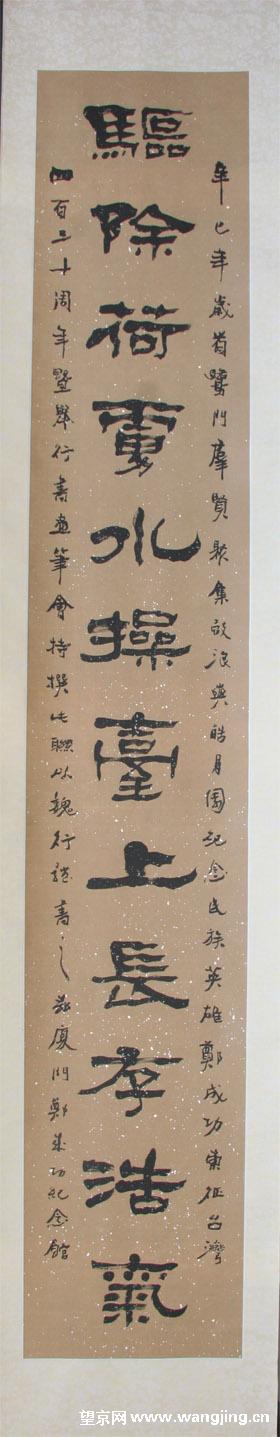 辛巳年歲首鷺門羣賢聚集鼓浪嶼皓月園紀念民族英雄鄭成功東征台灣
驅除荷虜水操臺上長存浩氣
四百二十周年暨舉行書畫筆會特撰此聯以魏行體書之廈門鄭成功紀念館
望京网 www.wangjing.cn